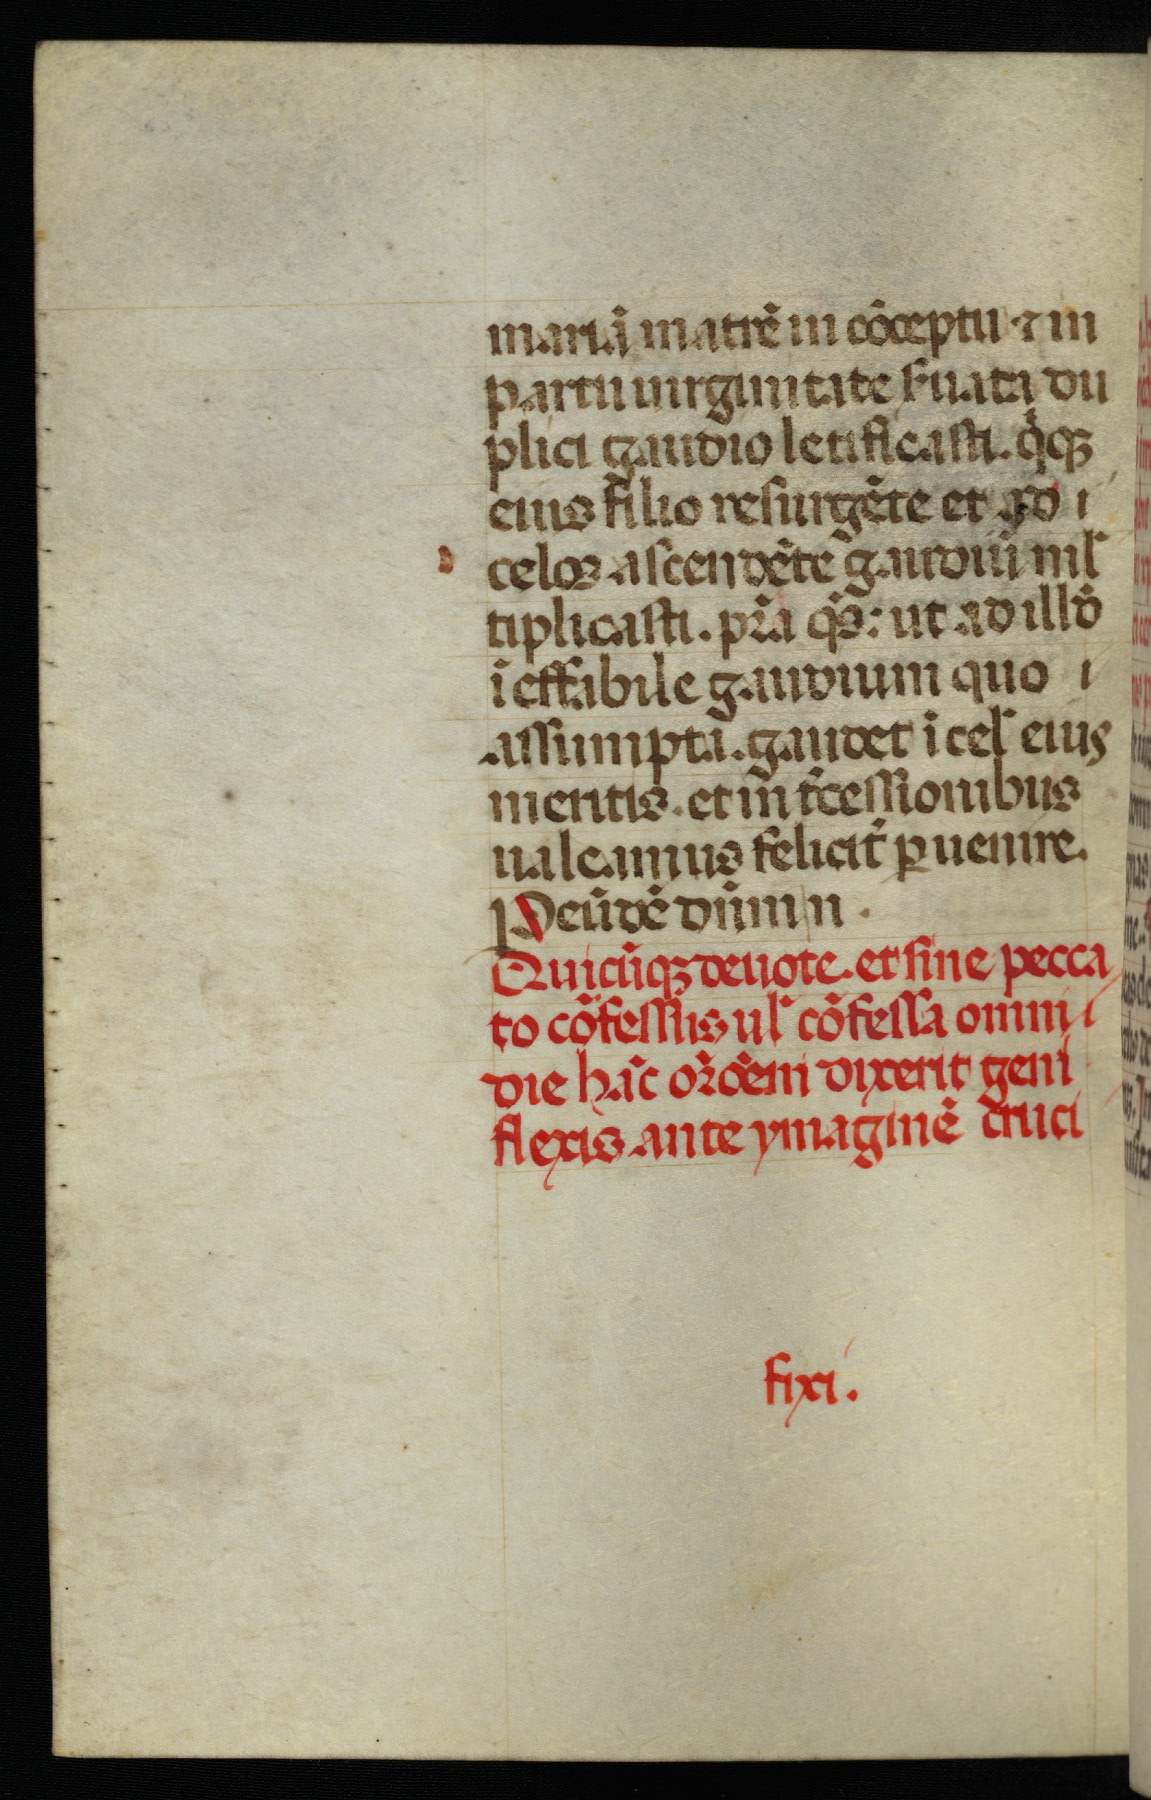 mariā matrē in cōceptu ⁊ in
partu uirginitate ẜuata du
plici gaudio letificasti. q̇qꝫ
eius filio resurgēte et ad i
celoꝝ ascendēte gaudiū ml̉
tiplicasti. pr̄a qs̄: ut ad illd̄
ī effabile gaudium quo i
assumpta. gaudet ī cel̉ eius
meritis. et īn t̄cessionibus
ualeamus felicit̉ ꝑuenire.
Peūdē dūm n.
Quicūqꝫ deuote. et sine pecca
to cōfessus ul̉ cōfessa omni
die hāc or̄oēm dixerit geni
flexis ante ymaginē cruci
fixi.